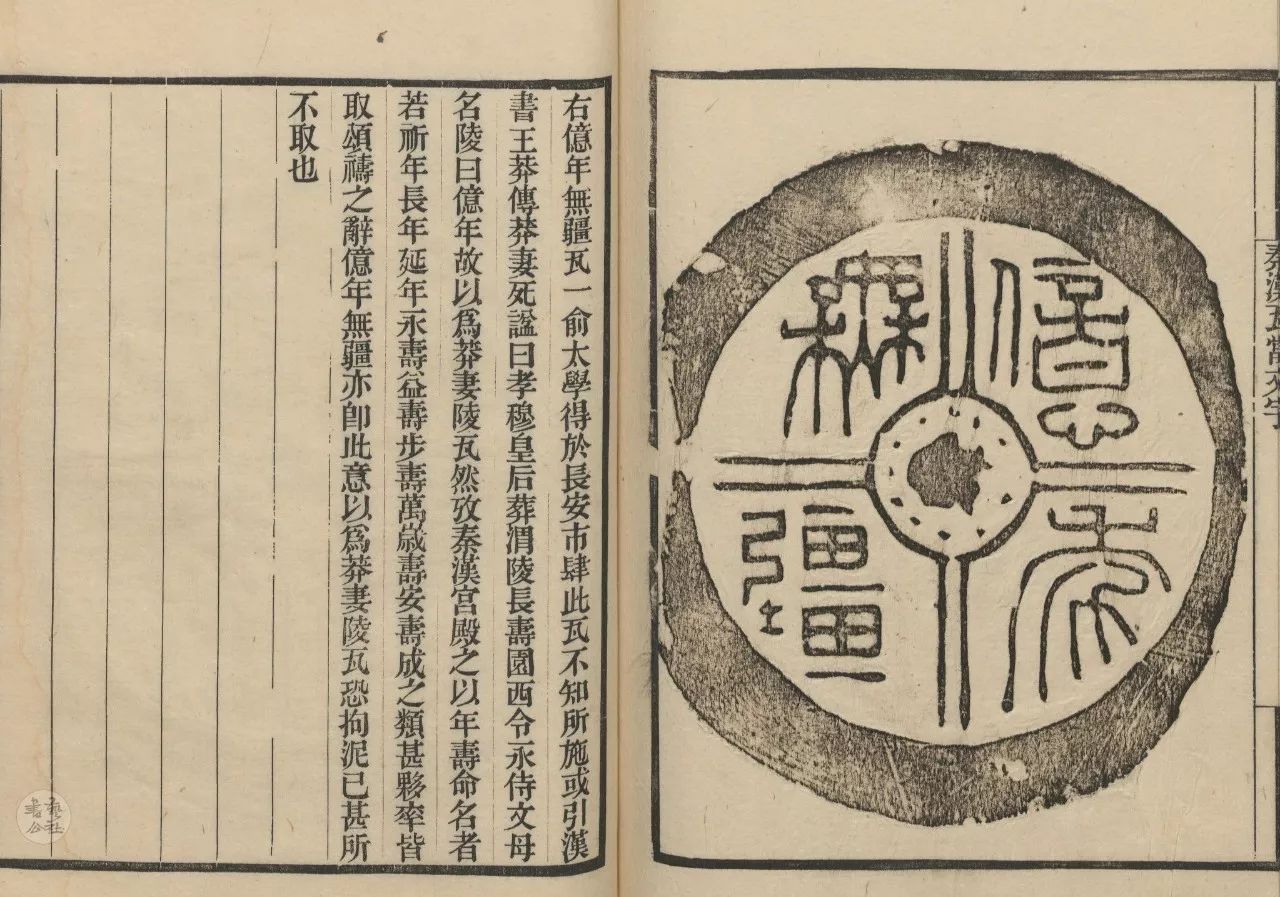 億年無疆
秦漢瓦當文字
右億年無疆瓦一俞太學得於長安市肆此瓦不知所施或引漢
書王莽傳莽妻死謚曰孝穆皇后葬渭陵長壽園西令永侍文母
名陵曰億年故以爲莽妻陵瓦然攷秦漢宮殿之以年壽命名者
若祈年長年延年永壽益壽步壽萬歲壽安壽成之類甚夥率皆
取頌禱之辭億年無疆亦卽此意以爲莽妻陵瓦恐拘泥已甚所
不取也